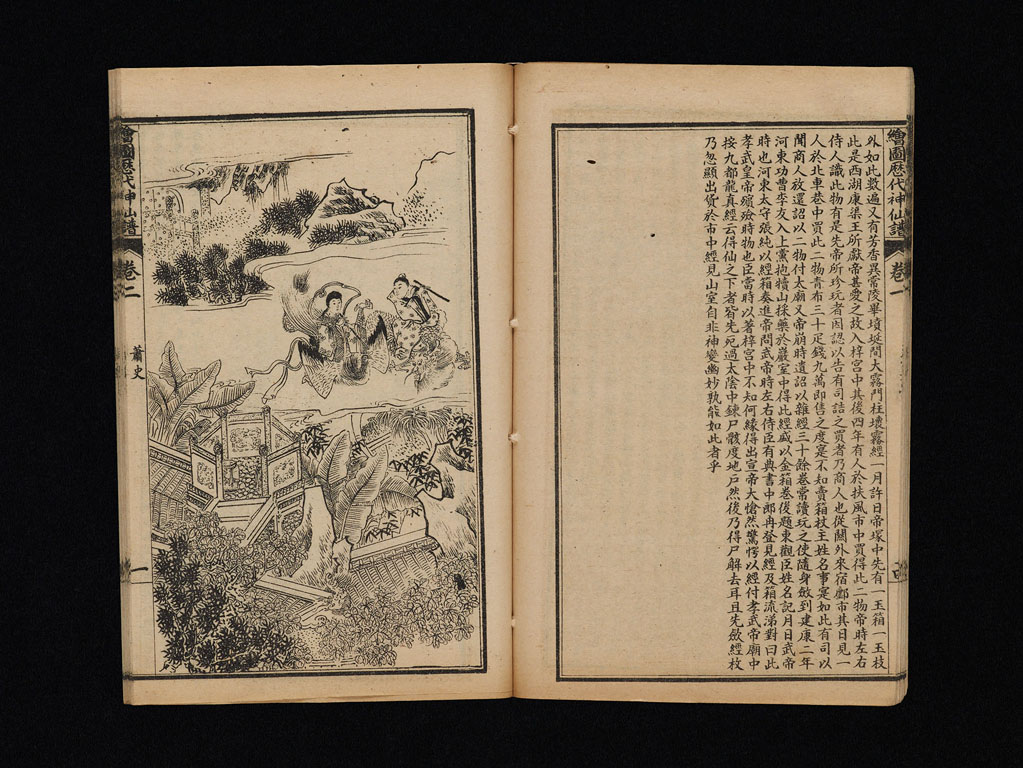 繪圖歷代神仙譜 卷一
外如此數遍又有芳香異常陵畢墳埏間大霧門柱壞霧經一月許日帝塚中先有一玉箱一玉杖
此是西湖康渠王所獻帝甚愛之故入梓宮中其後四年有人於扶風市中買得此二物帝時左右
侍人識此物有是先帝所珍玩者因認以告有司詰之買者乃商人也從關外來宿鄽市其日見一
人於北車巷中賣此二物青布三十疋錢九萬即售之度寔不知賣箱杖主姓名事寔如此有司以
聞商人放還詔以二物付太廟又帝崩時遺詔以雜經三十餘卷常讀玩之使隨身斂到建康二年
河東功曹李友入上黨抱犢山採藥於巖室中得此經盛以金箱卷後題東觀臣姓名記月日武帝
時也河東太守張純以經箱奏進帝問武帝時左右侍臣有典書中郎冉登見經及箱流涕對曰此
孝武皇帝殯殮時物也臣當時以著梓宮中不知何緣得出宣帝大愴然驚愕以經付孝武帝廟中
按九都龍真經云得仙之下者皆先死過太陰中鍊尸骸度地戶然後乃得尸解去耳且先斂經杖
乃忽顯出貨於市中經見山室自非神變幽妙孰能如此者乎
繪圖歷代神仙譜 卷二
蕭史
一